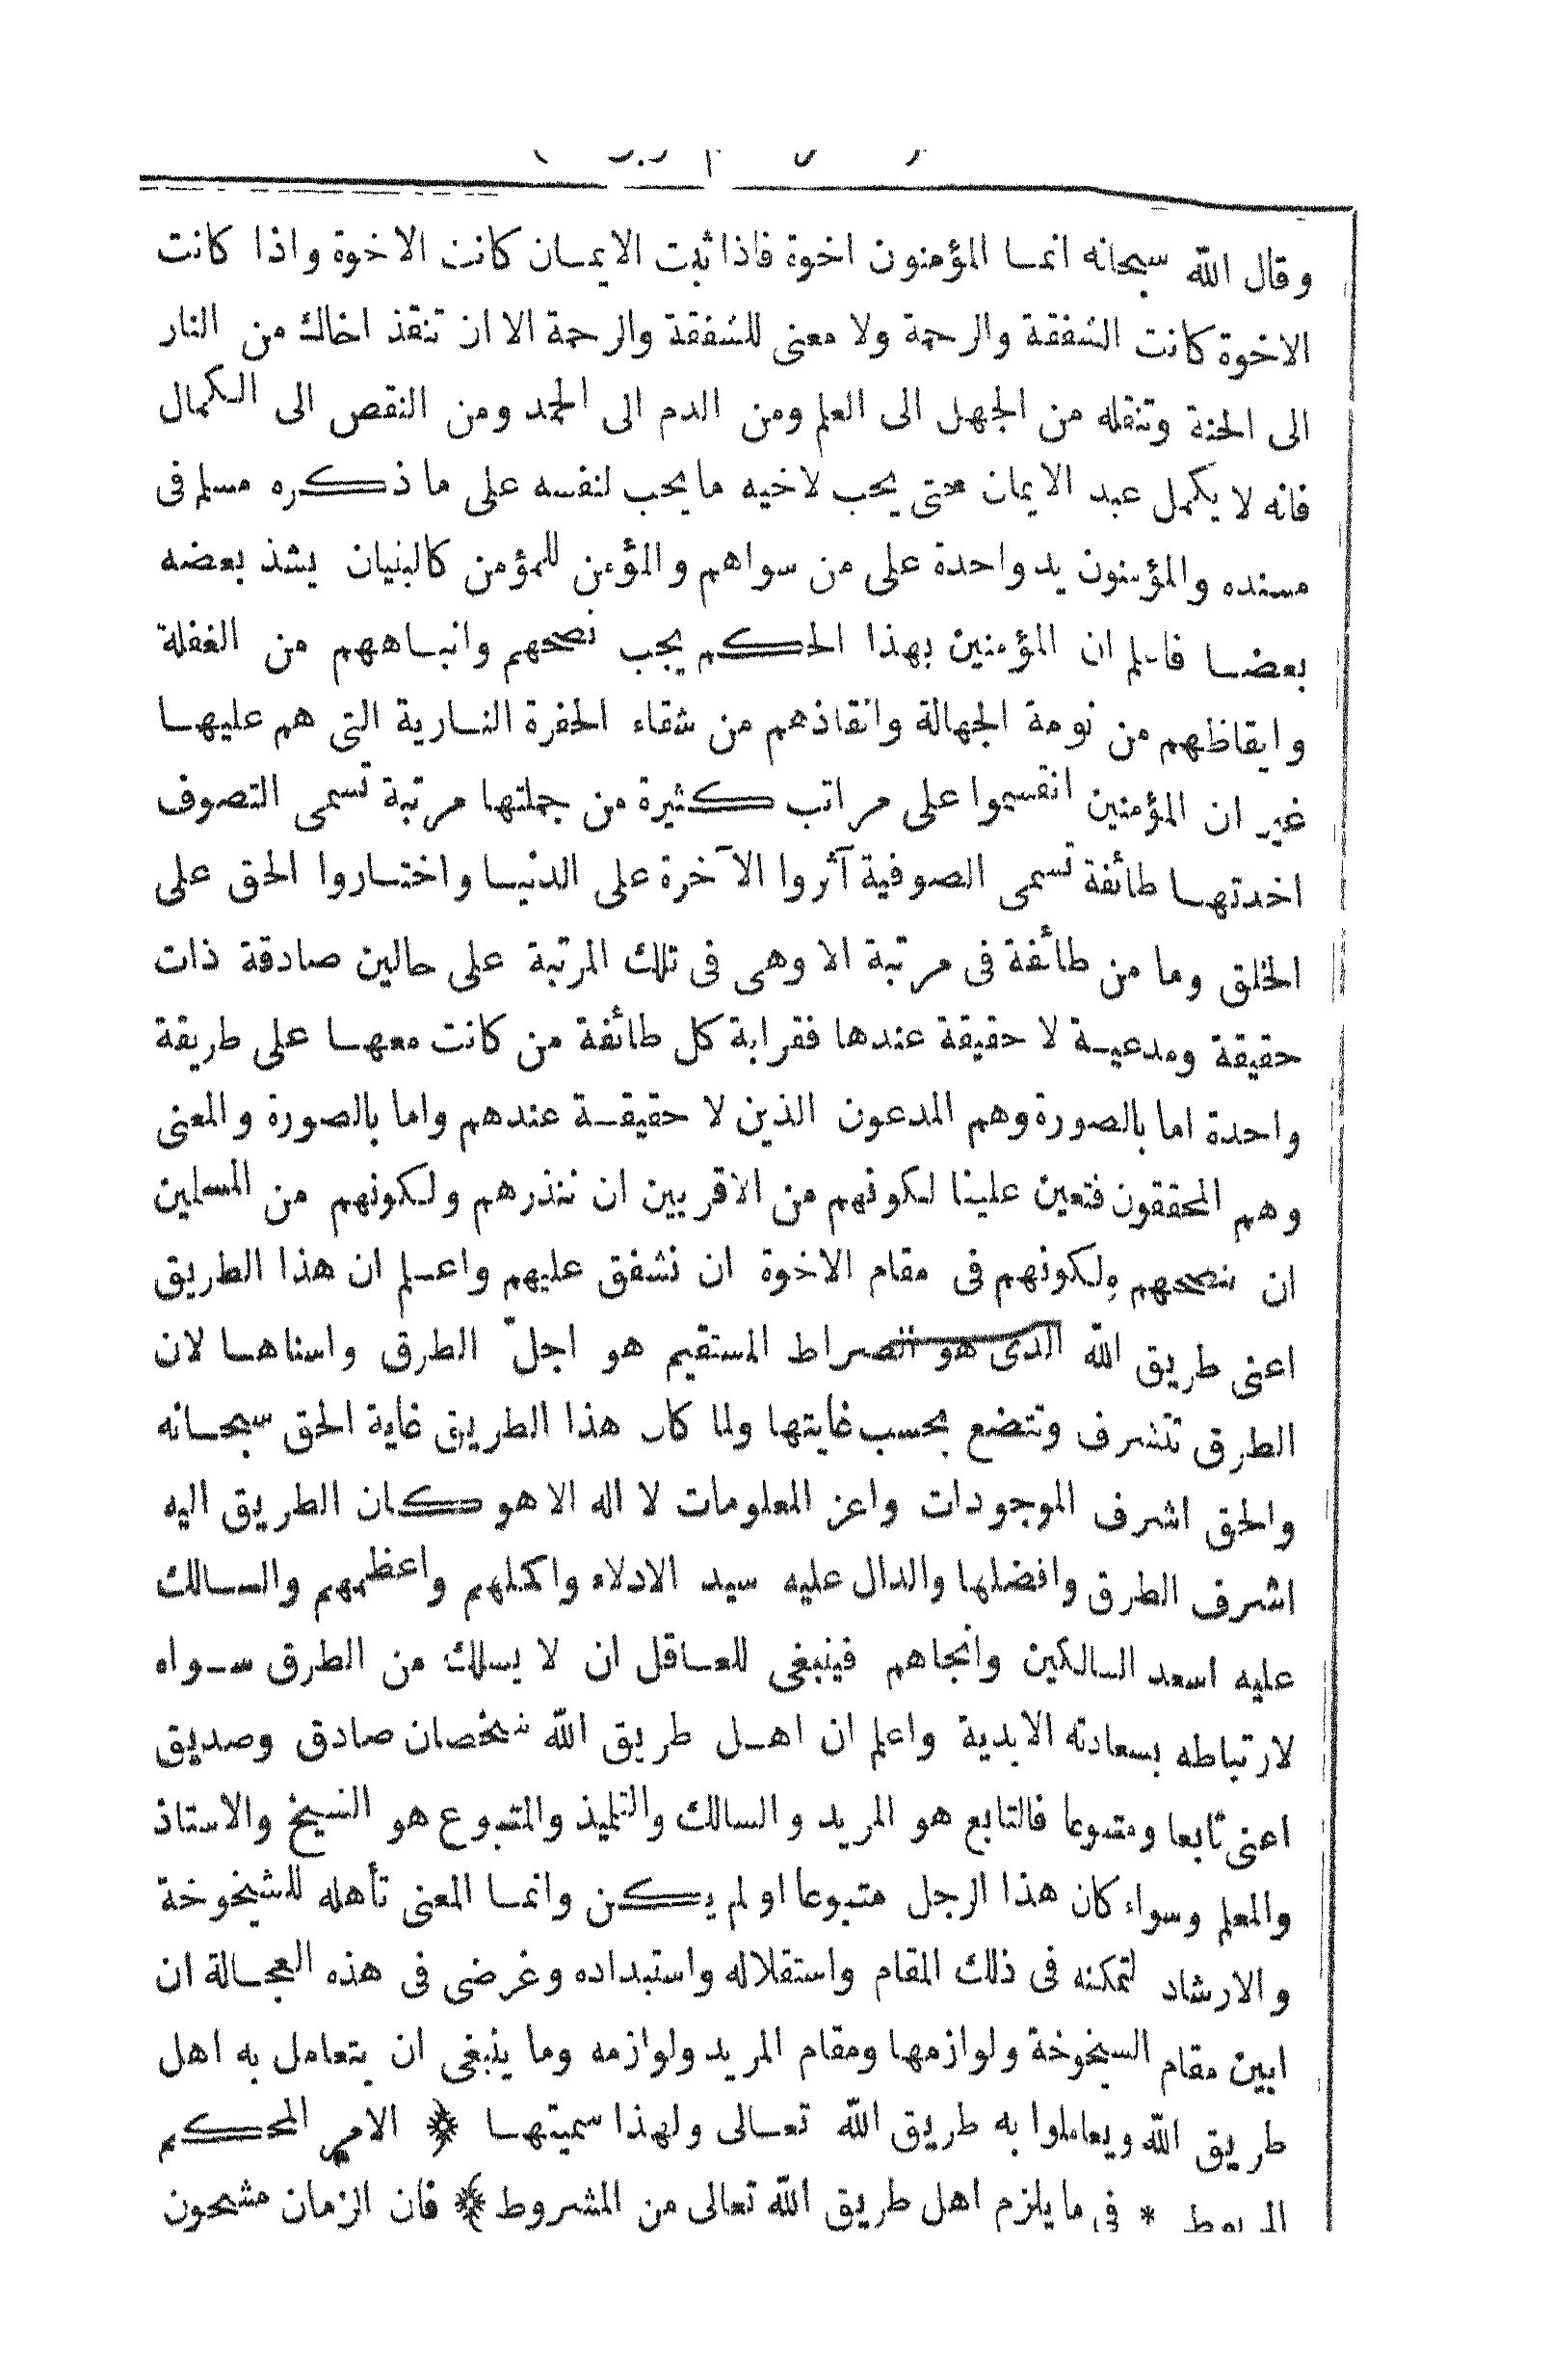 وقال الله سبحانه انمـا المؤمنون اخوة فاذا ثبت الايمـان كانت الاخوة واذا كانت
الاخوة كانت الشفقة والرحمة ولا معنى للشفقة والرحمة الا ان تنقذ اخاك من النار
الى الجنة وتنقله من الجهل الى العلم ومن الذم الى الحمد ومن النقص الى الكمال
فانه لا يكمل عبد الايمان حتى يحب لاخيه ما يحب لنفسه على ما ذكره مسلم فى
مسنده والمؤمنون يد واحدة على من سواهم والمؤمن للمؤمن كالبنيان يشد بعضه
بعضـا فاعلم ان المؤمنين بهذا الحكم يجب نصحهم وانبـاههم من الغفلة
وايقاظهم من نومة الجهالة وانقاذهم من شفاء الحفرة النـارية التى هم عليهـا
غير ان المؤمنين انقسموا على مراتب كثيرة من جملتها مرتبة تسمى التصوف
اخذتهـا طائفة تسمى الصوفية آثروا الآخرة على الدنيـا واختـاروا الحق على
الخلق وما من طائفة فى مرتبة الا وهى فى تلك المرتبة على حالين صادقة ذات
حقيقة ومدعيـة لا حقيقة عندها فقرابة كل طائفة من كانت معهـا على طريقة
واحدة اما بالصورة وهم المدعون الذين لا حقيقـة عندهم واما بالصورة والمعنى
وهم المحققون فتعين علينا لكونهم من الاقربين ان ننذرهم ولكونهم من المسلمين
ان ننصحهم ولكونهم فى مقام الاخوة ان نشفق عليهم واعـلم ان هذا الطريق
اعنى طريق الله الذى هو الصراط المستقيم هو اجلّ الطرق واسناهـا لان
الطرق تتشرف وتتضع بحسب غايتها ولما كان هذا الطريق غاية الحق سبحـانه
والحق اشرف الموجودات واعز المعلومات لا اله الا هو كان الطريق اليه
اشرف الطرق وافضلها والدال عليه سيد الادلاء واكملهم واعظمهم والسـالك
عليه اسعد السالكين وانجاهم فينبغى للعـاقل ان لا يسلك من الطرق سـواه
لارتباطه بسعادته الابدية واعلم ان اهـل طريق الله شخصان صادق وصديق
اعنى تابعا ومتبوعا فالتابع هو المريد والسالك والتلميذ والمتبوع هو الشيخ والاستاذ
والمعلم وسواء كان هذا الرجل متبوعا او لم يكن وانمـا المعنى تأهله للشيخوخة
والارشاد لتمكنه فى ذلك المقام واستقلاله واستبداده وغرضى فى هذه العجـالة ان
ابين مقام الشيخوخة ولوازمها ومقام المريد ولوازمه وما ينبغى ان يتعامل به اهل
طريق الله ويعاملوا به طريق الله تعـالى ولهذا سميتهـا ﴿ الامر المحكم
المربوط * فى ما يلزم اهل طريق الله تعالى من المشروط ﴾ فان الزمان مشحون